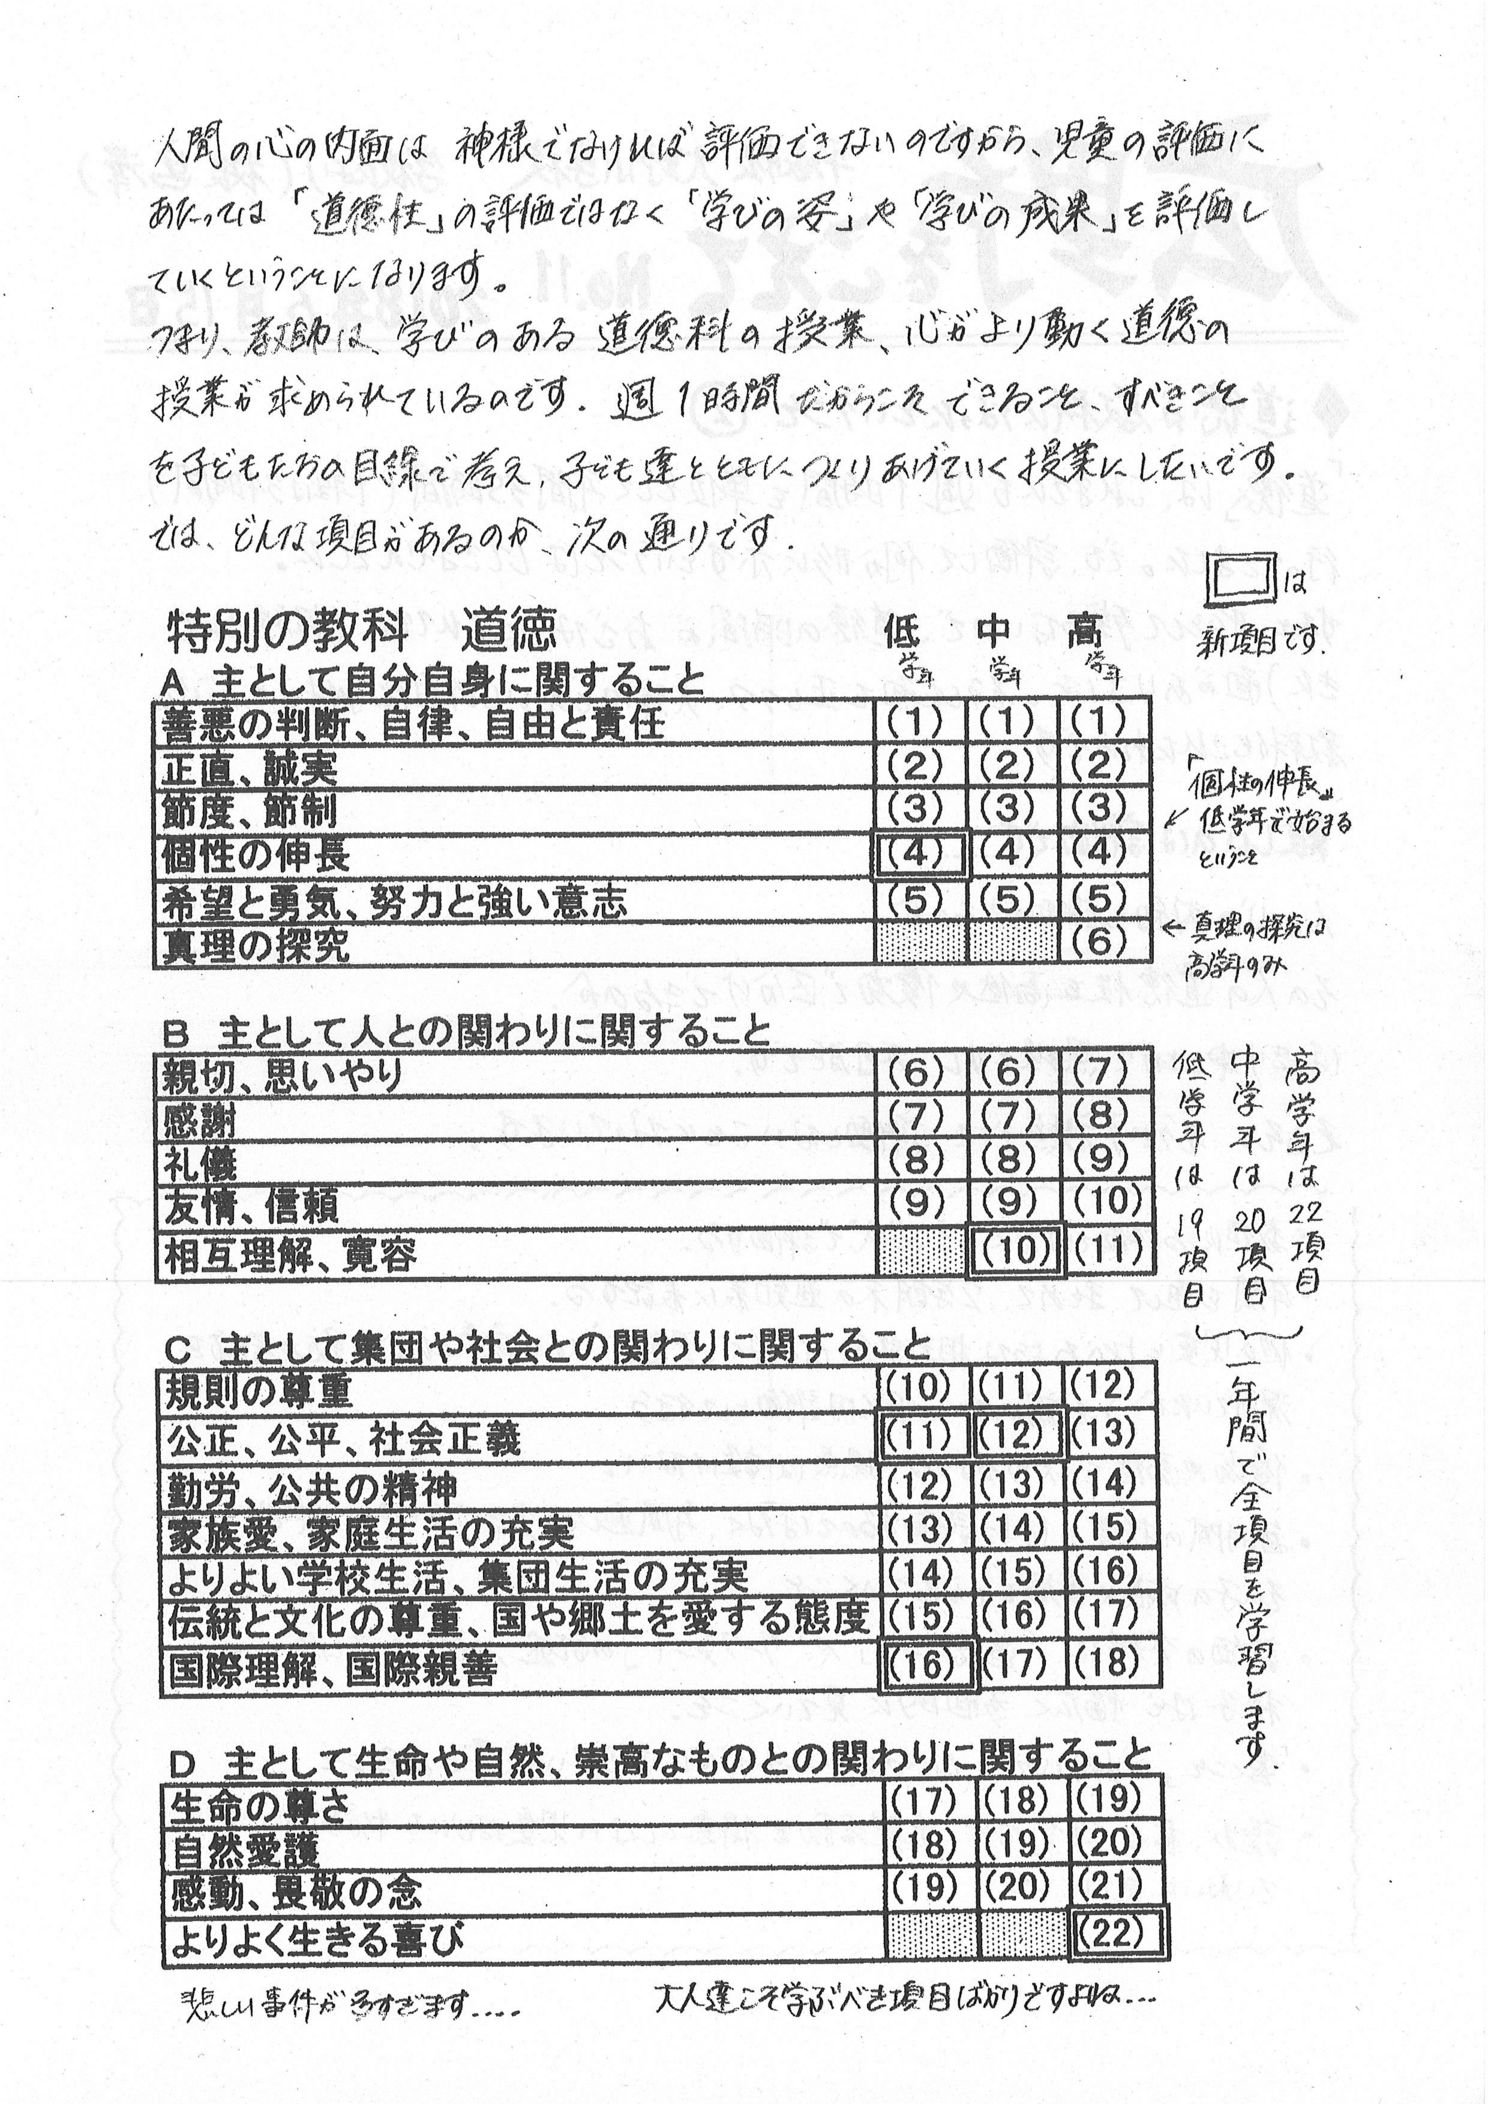 人間の心の内面は 神様でなければ評価できないのですから、児童の評価に
あたっては「道徳性」の評価ではなく「学びの姿」や「学びの成果」を評価し
ていくということになります。
つまり、教師は、学びのある 道徳科の授業、心がより動く道徳の
授業が求められているのです. 週1時間だからこそ できること、すべきこと
を子どもたちの目線で考え, 子ども達とともにつくりあげていく授業にしたいです.
では、どんな項目があるのか、次の通りです.
□は
新項目です.
特別の教科 道徳 低学年 中学年 高学年
A 主として自分自身に関すること
善悪の判断、自律、自由と責任 (1) (1) (1)
正直、誠実 (2) (2) (2)
節度、節制 (3) (3) (3)
個性の伸長 (4) (4) (4)
希望と勇気、努力と強い意志 (5) (5) (5)
真理の探究 (6)
「個性の伸長」
↙ 低学年で始まる
ということ
← 真理の探究は
高学年のみ
B 主として人との関わりに関すること
親切、思いやり (6) (6) (7)
感謝 (7) (7) (8)
礼儀 (8) (8) (9)
友情、信頼 (9) (9) (10)
相互理解、寛容 (10) (11)
高学年は22項目
中学年は20項目
低学年は19項目
一年間で全項目を学習します.
C 主として集団や社会との関わりに関すること
規則の尊重 (10) (11) (12)
公正、公平、社会正義 (11) (12) (13)
勤労、公共の精神 (12) (13) (14)
家族愛、家庭生活の充実 (13) (14) (15)
よりよい学校生活、集団生活の充実 (14) (15) (16)
伝統と文化の尊重、国や郷土を愛する態度 (15) (16) (17)
国際理解、国際親善 (16) (17) (18)
D 主として生命や自然、崇高なものとの関わりに関すること
生命の尊さ (17) (18) (19)
自然愛護 (18) (19) (20)
感動、畏敬の念 (19) (20) (21)
よりよく生きる喜び (22)
悲しい事件が多すぎます....
大人達こそ学ぶべき項目ばかりですよね...